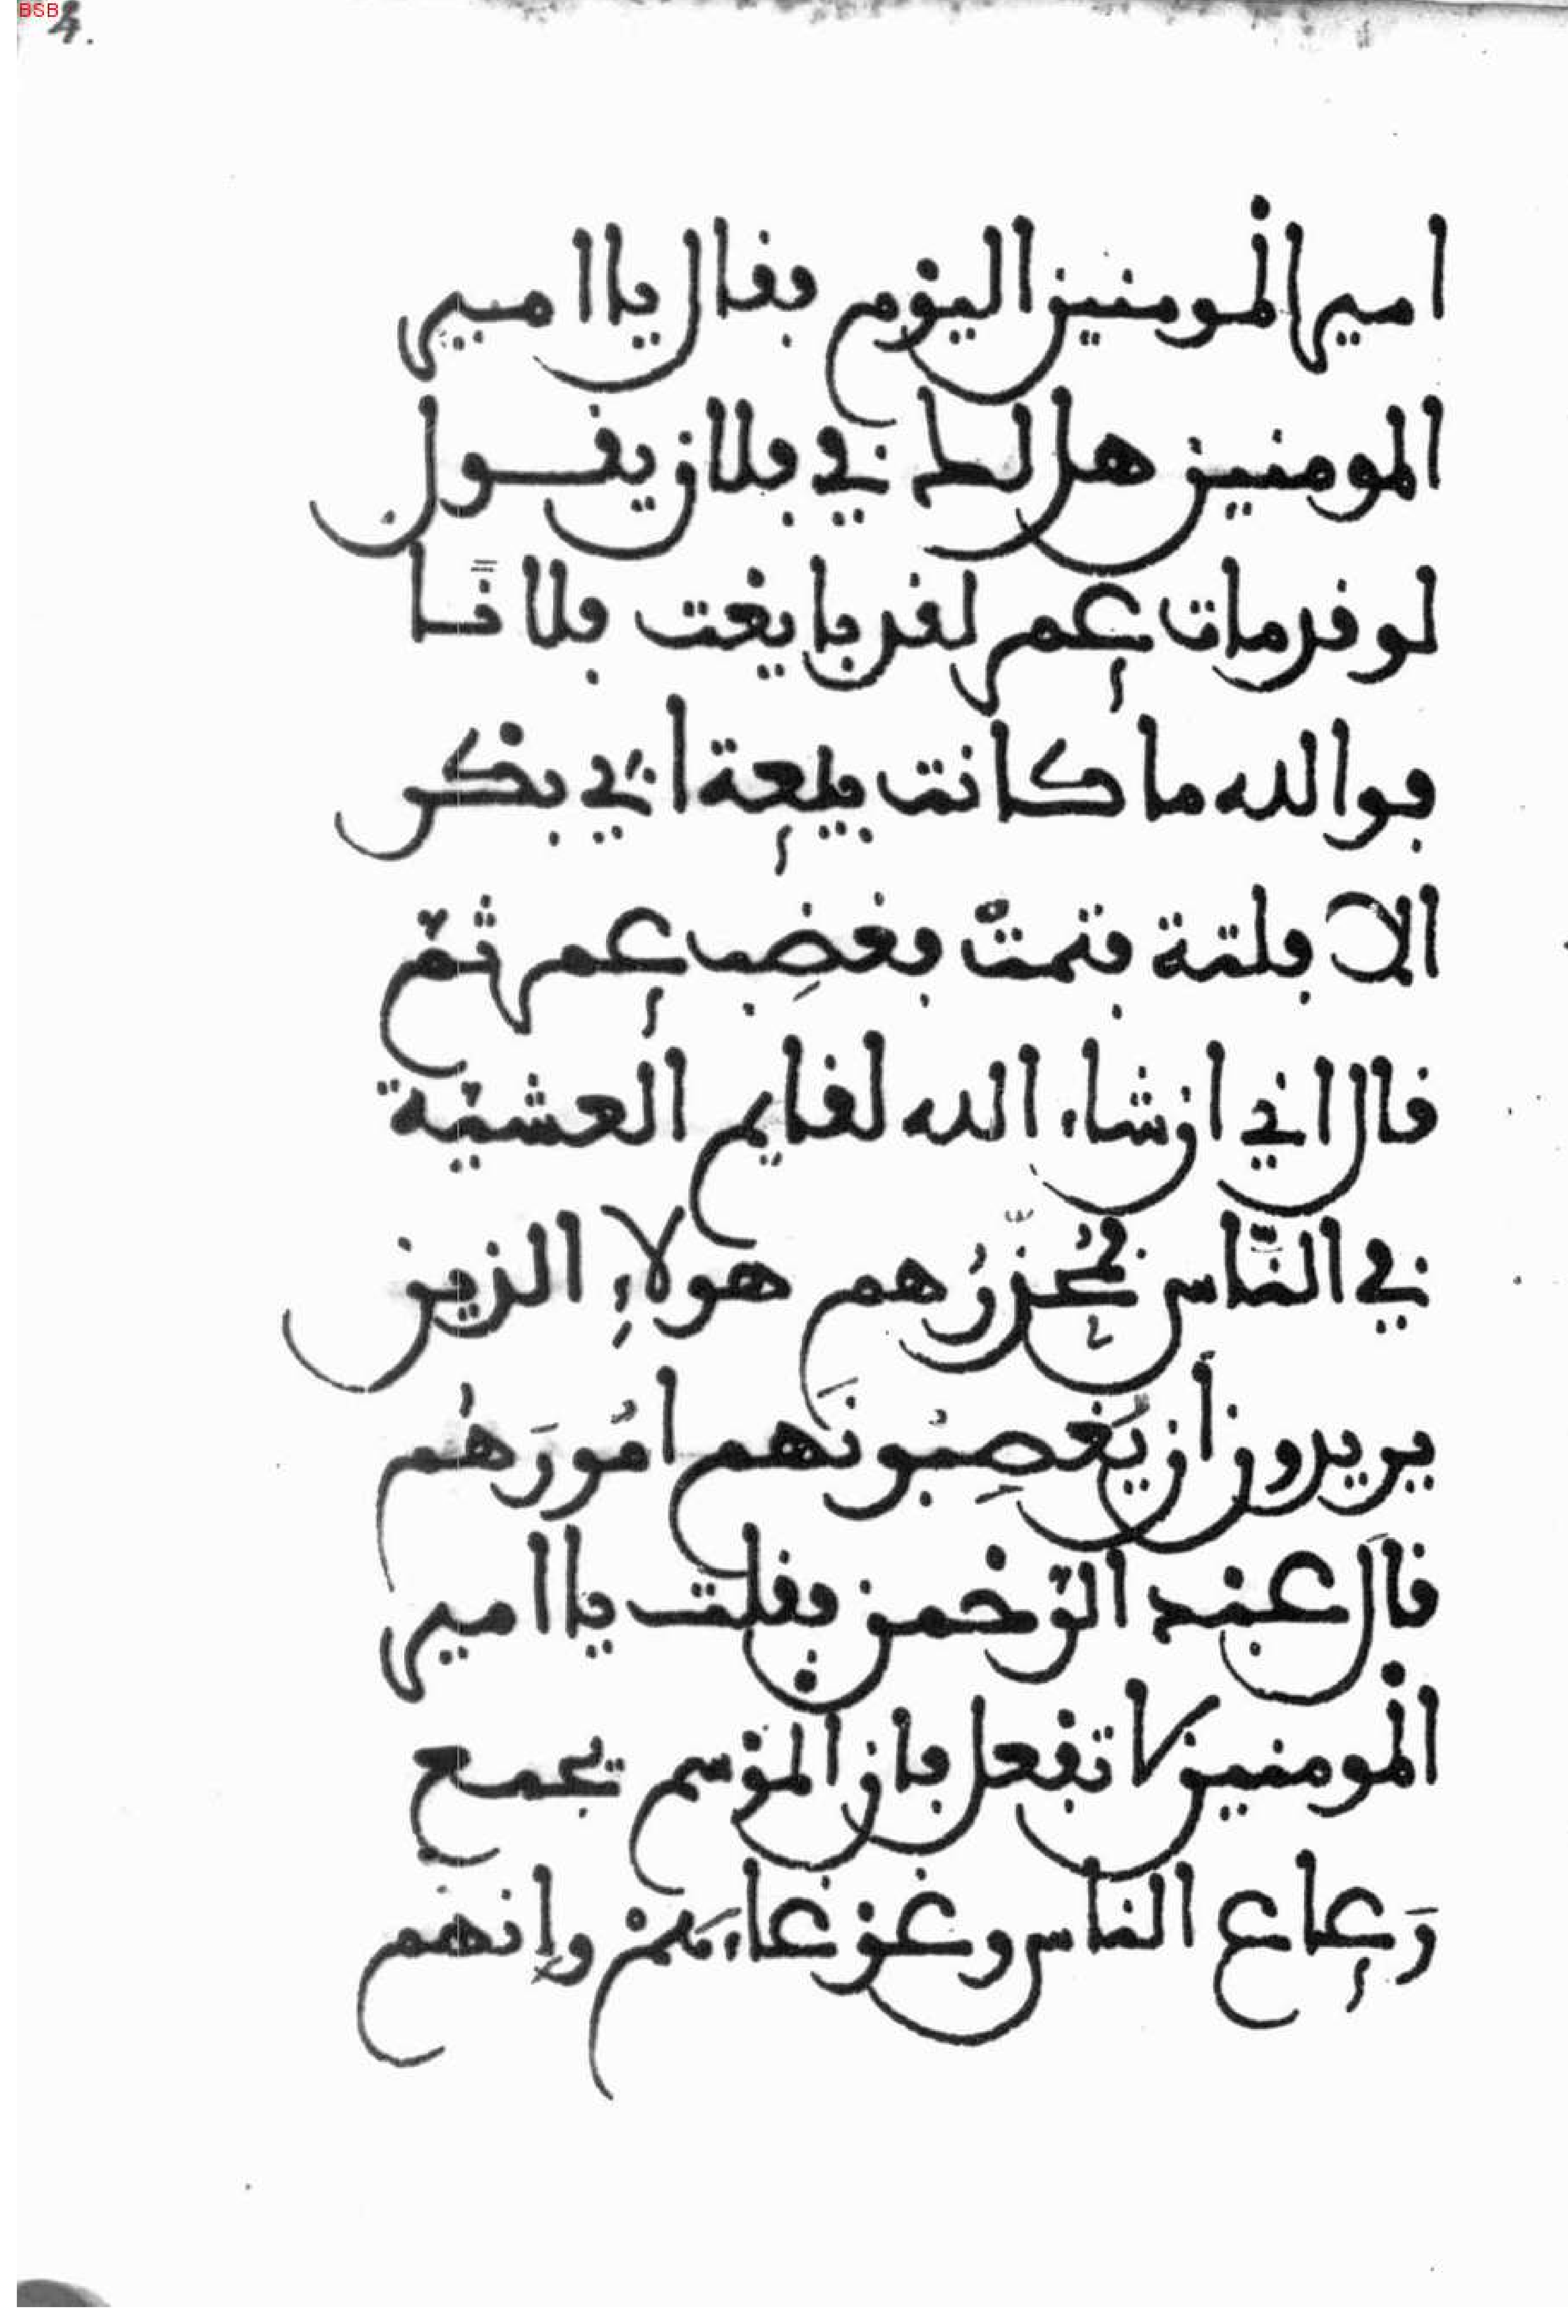 امير المومنين اليوم فقال يا امير
المومنين هل لك في فلان يقول
لو قد مات عمر لقد بايعت فلانا
فوالله ما كانت بيعة ابي بكر
الا فلتة فتمّت فغضِب عمر ثمّ
قال اني ان شاء الله لقايم العشيّة
في النّاس فمُحذّرُهم هولاءِ الذين
يريدون أن يَغصِبُونَهم امُورَهُم
قال عبد الرّحمن فقلت يا امير
المومنين لا تفعل فان الموْسم يجمع
رَعاع الناس وغوْغاءَهمْ وإنهم